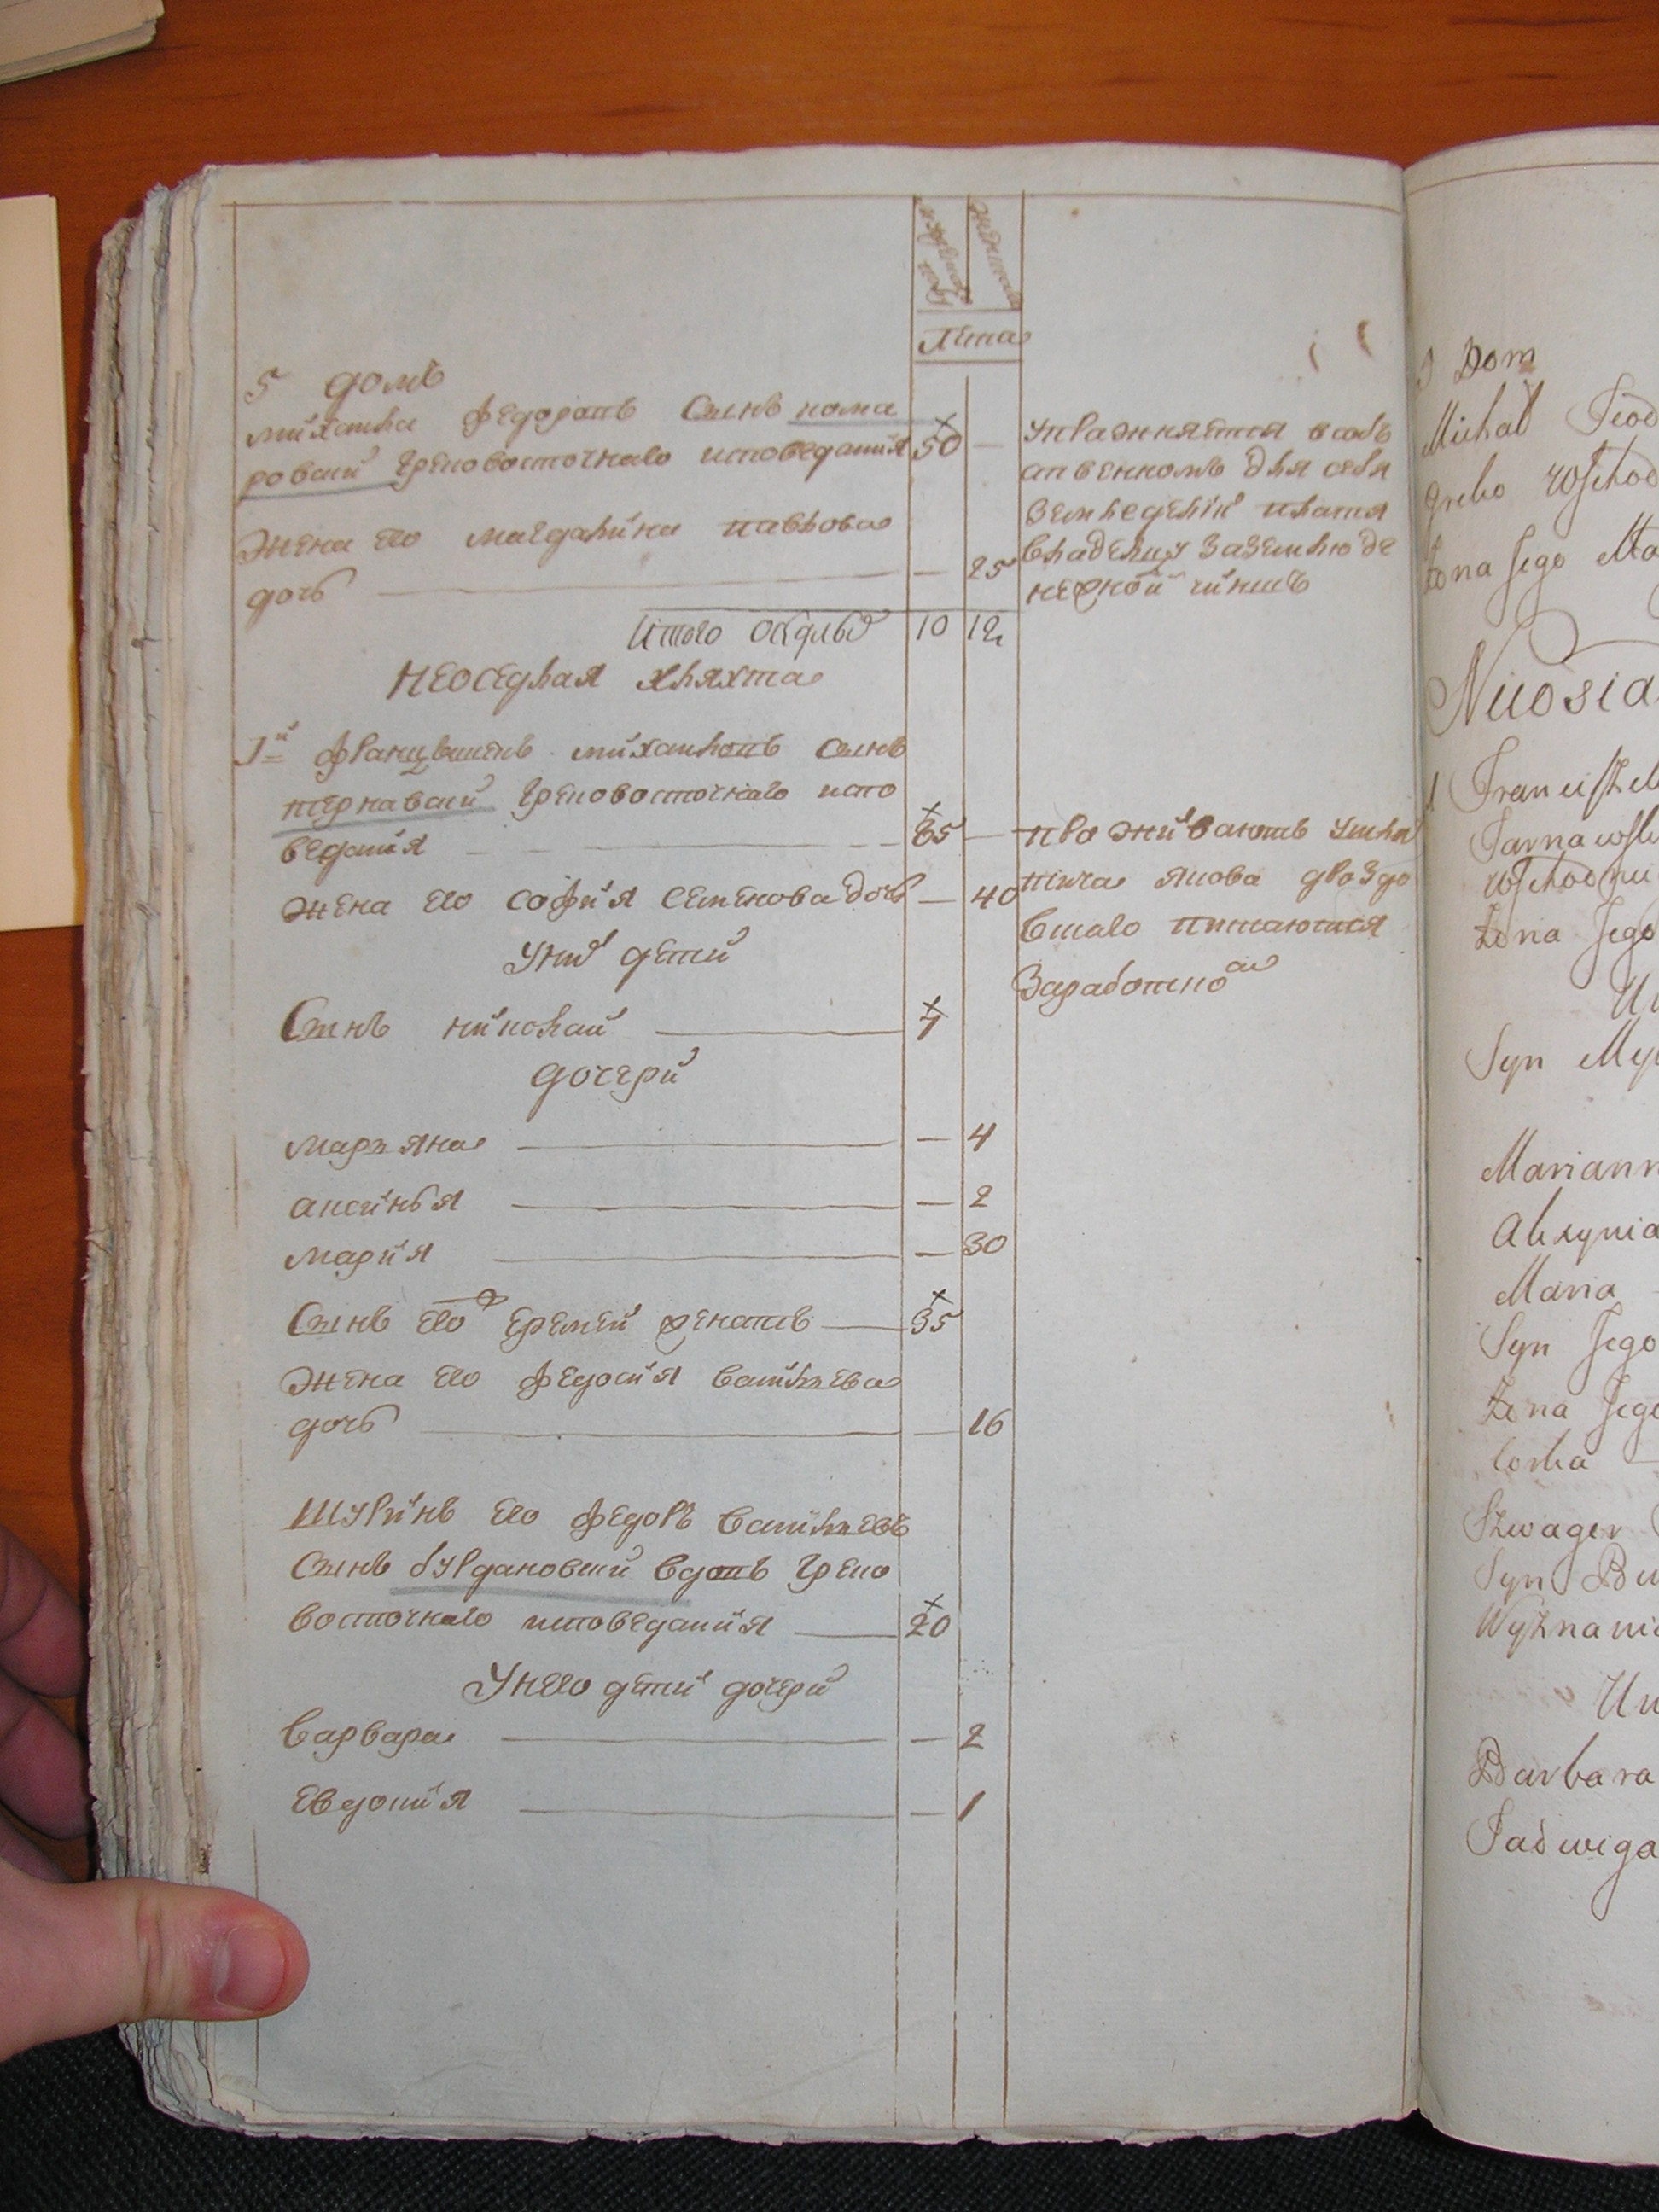 Лета
5 домъ
михаила федоровъ Сынъ кома
ровский Грековосточнаго исповедания 50 —
упражняется в соб
ственномъ для себя
земледелии платя
владелцу за землю де
нежной чиншъ
жена его магдалина павлова
дочь — 25
Итого обоего 10 12
неоседлая хляхта
1й францышекъ михайловъ сынъ
тернавский Грековосточнаго испо
ведания 65 —
жена его софия семенова дочь — 40
проживаютъ
якова дроздо
вского питаются
Заработкоа
у них дети
Сынъ николай 7
дочери
марьяна — 4
аксинья — 2
мария — 30
Сынъ его еремей женатъ 35
жена его федосия васильева
дочь — 16
Шуринъ его федоръ васильевъ
Сынъ бурдановский вдовъ Греко
восточнаго исповедания 20
У него дети дочери
Варвара — 2
Евдокия — 1
5 Dom
Michał Teod
Greko Wschod
Żona Jego Ma
Nieosia
1 Franciszek
Tarnawsk
Wschodni
Żona Jego
U
Syn Myk
Mariann
Aksynia
Maria
Syn Jego
Żona Jego
Corka
Szwager
Syn Bu
Wyznani
U
Barbara
Jadwiga